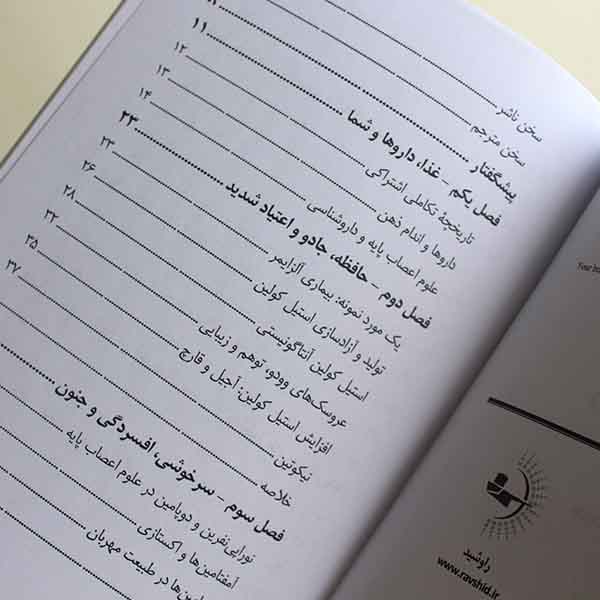 سخن ناشر
سخن مترجم
پیشگفتار
فصل یکم – غذا، داروها و شما ۱۱
تاریخچهٔ تکاملی اشتراکی ۱۲
داروها و اندام ذهن ۱۳
علوم اعصاب پایه و داروشناسی ۱۴
فصل دوم – حافظه، جادو و اعتیاد شدید ۲۳
یک مورد نمونه: بیماری آلزایمر ۲۳
تولید و آزادسازی استیل کولین ۲۶
استیل کولین آنتاگونیستی ۲۸
عروسک‌های وودو، توهم و زیبایی ۳۲
افزایش استیل کولین: آجیل و قارچ ۳۵
نیکوتین ۳۷
خلاصه
فصل سوم – سرخوشی، افسردگی و جنون
نوراپی‌نفرین و دوپامین در علوم اعصاب پایه
آمفتامین‌ها و اکستازی
در طبیعت مهربان
Your
راوشید
www.ravshid.ir